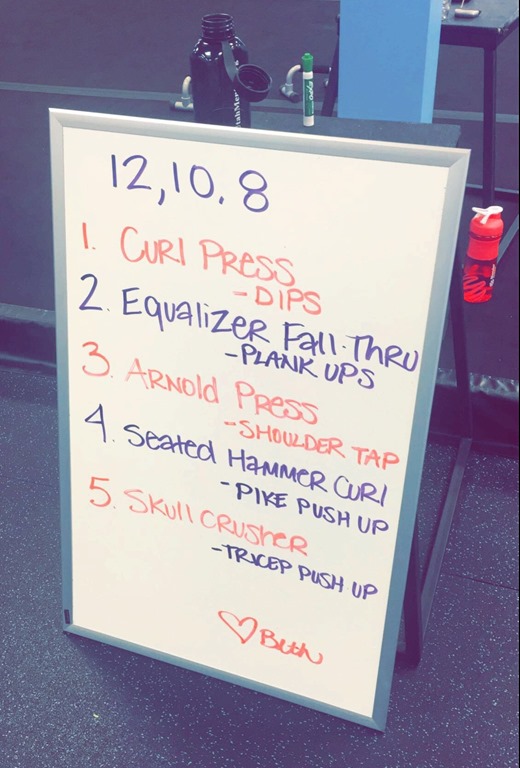 12,10.8
1. CURl PRESS
-DIPS
2. EqualizER Fall-THRU
-PLANK UPS
3. ARNOlD PRESS
-SHOULDER TAP
4. Seated HammeR CURl
-PIKE PUSH UP
5. SKull CRUSHeR
-TRICEP PUSH UP
♡ Beth